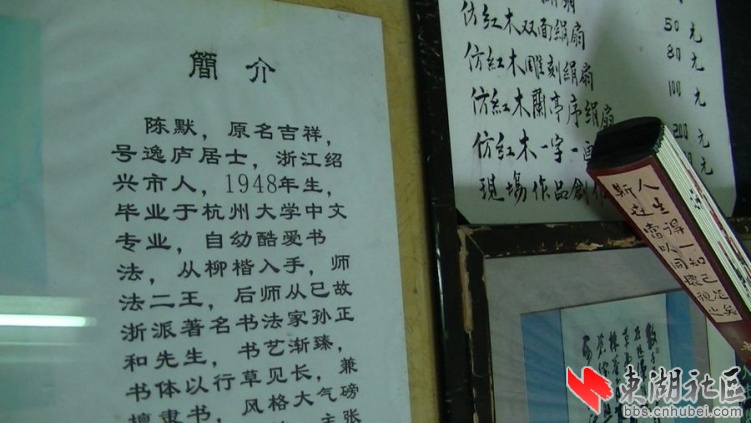 簡介
陈默，原名吉祥，
号逸庐居士，浙江绍
兴市人，1948年生，
毕业于杭州大学中文
专业，自幼酷爱书
法，从柳楷入手，师
法二王，后师从已故
浙派著名书法家孙正
和先生，书艺渐臻，
书体以行草见长，兼
擅隶书，风格大气磅
主张
仿紅木双面绢扇 50元
仿紅木雕刻绢扇 80元
仿紅木蘭亭序绢扇 100元
仿紅木一字一画 200元
現場作品創作
人生得一知己足矣
斯世當以同懷視之
東湖社区
bbs.cnhubei.com